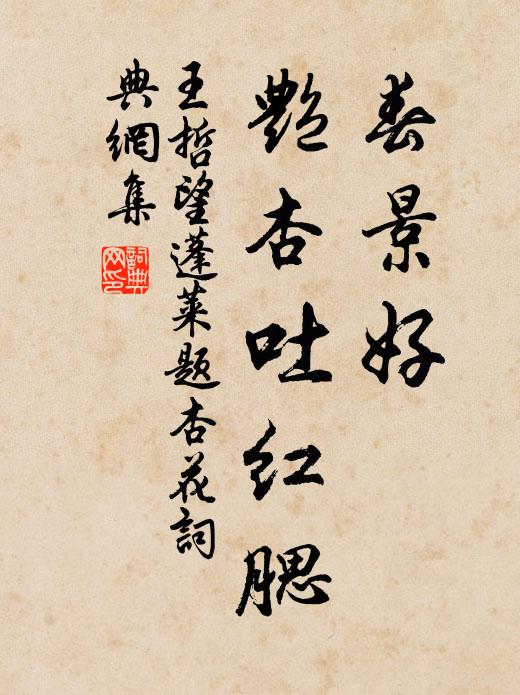 春景好
艷杏吐红腮
王哲望蓬莱题杏花詞
典網集
詞典網印